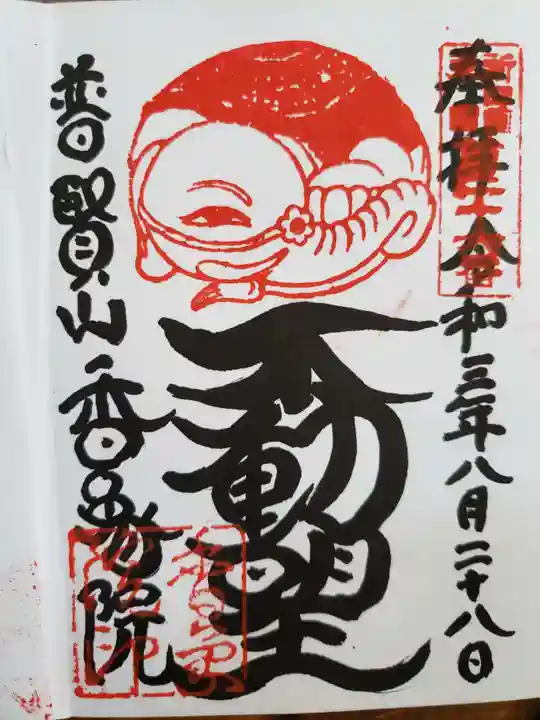 奉拝 令和三年八月二十八日
不動明王
普賢山 香象院